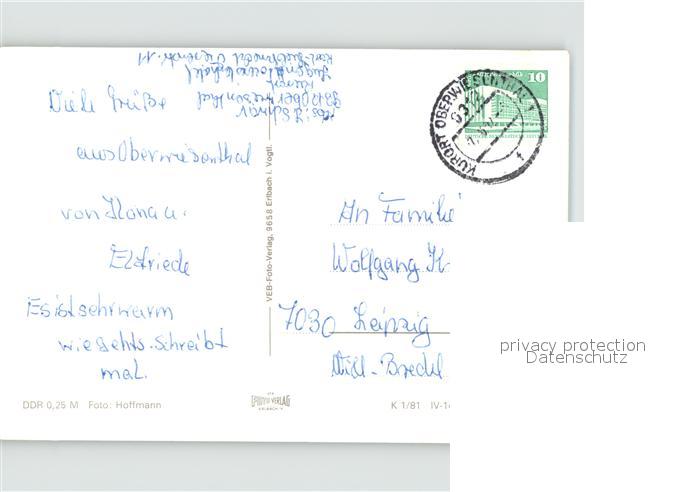 Viele Grüße
aus Oberwiesenthal
von Ilona u.
Elfriede
Es ist sehr warm
wie gehts. Schreibt
mal.
DDR 0,25 M Foto: Hoffmann
VEB-Foto-Verlag, 9658 Erlbach i. Vogtl.
FOTO VERLAG
KURORT OBERWIESENTHAL 1
10
An Familie
Wolfgang
7030 Leipzig
Will-Bredel
K 1/81 IV-14
privacy protection
Datenschutz